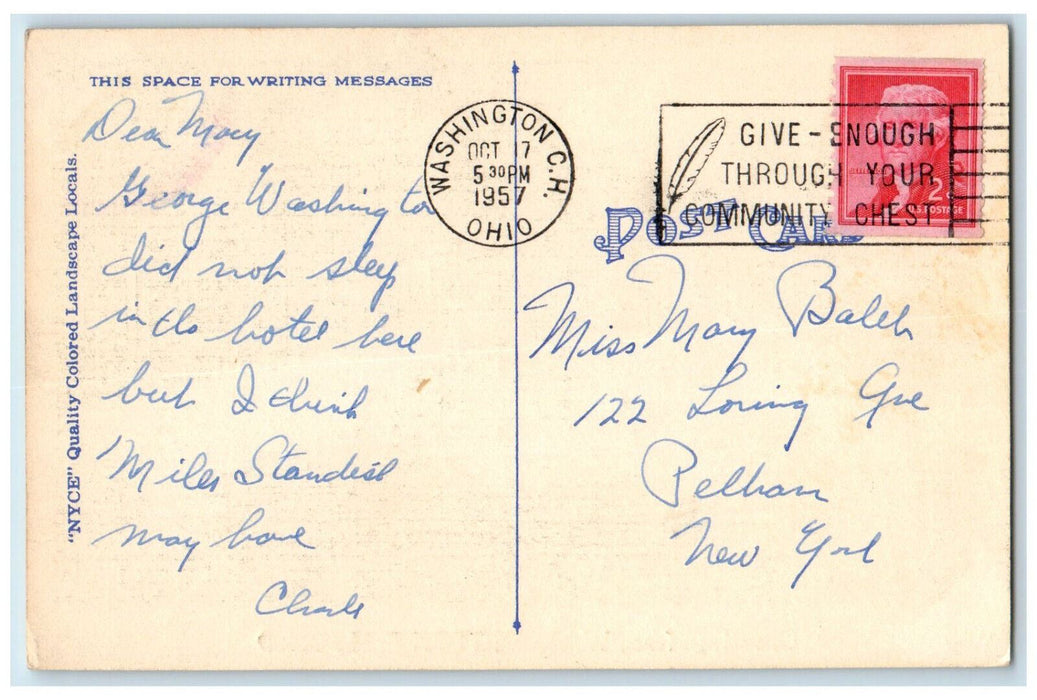 THIS SPACE FOR WRITING MESSAGES
Dear Mary
George Washington
did not sleep
in the hotel here
but I think
Miles Standish
may have
Charle
"NYCE" Quality Colored Landscape Locals.
WASHINGTON C.H.
OCT 17
5 30 PM
1957
OHIO
GIVE-ENOUGH
THROUGH YOUR
COMMUNITY CHEST
2¢
U.S. POSTAGE
POST CARD
Miss Mary Balch
122 Loring Ave
Pelham
New York